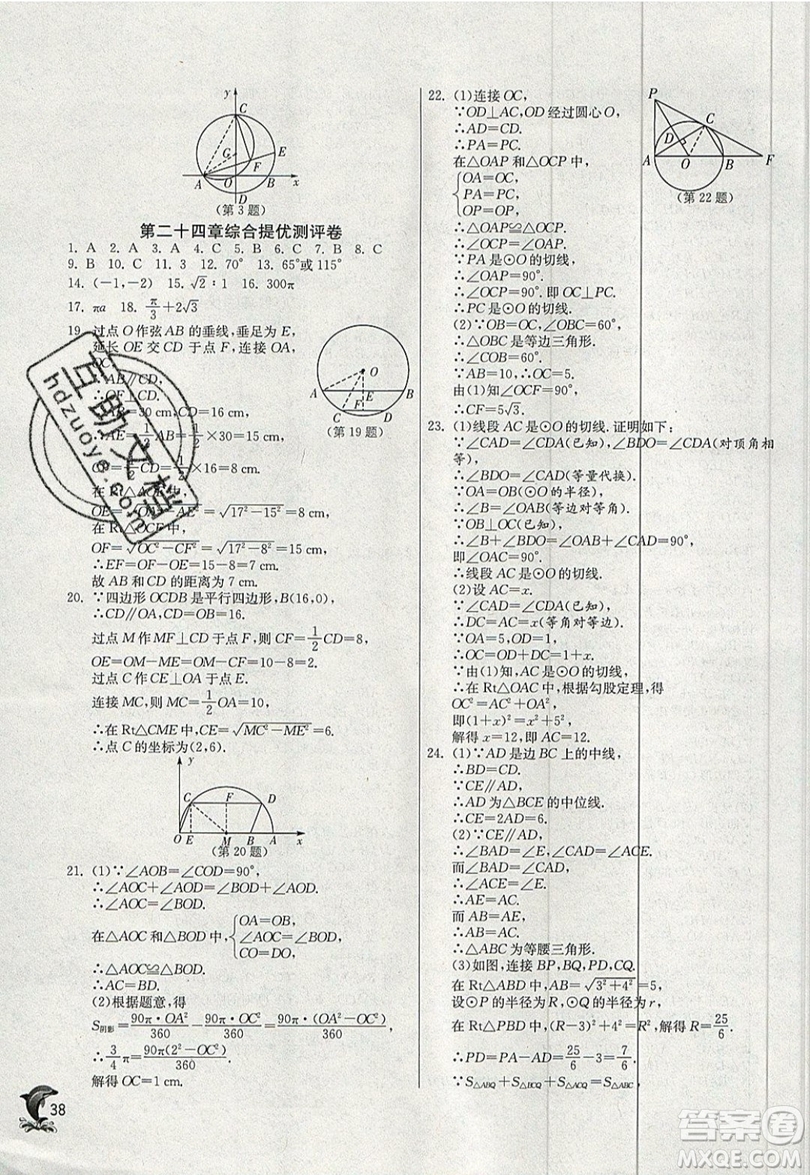 y
C
G
E
F
A
O
B
x
(第3题)
第二十四章综合提优测评卷
1. A 2. A 3. A 4. C 5. C 6. B 7. B 8. C
9. B 10. C 11. C 12. 70° 13. 65°或115°
14. (-1,-2) 15. √2 : 1 16. 300π
17. πa 18. π/3+2√3
19. 过点O作弦AB的垂线,垂足为E,
延长OE交CD于点F,连接OA,
OC.
∵AB∥CD,
∴OF⊥CD.
∵AB=30 cm,CD=16 cm,
∴AE=1/2AB=1/2×30=15 cm,
CF=1/2CD=1/2×16=8 cm.
在Rt△AOE中,
OE=√(OA²-AE²)=√(17²-15²)=8 cm,
在Rt△OCF中,
OF=√(OC²-CF²)=√(17²-8²)=15 cm,
∴EF=OF-OE=15-8=7 cm.
故AB和CD的距离为7 cm.
O
A
E
B
C
F
D
(第19题)
20. ∵四边形OCDB是平行四边形,B(16,0),
∴CD∥OA,CD=OB=16.
过点M作MF⊥CD于点F,则CF=1/2CD=8,
OE=OM-ME=OM-CF=10-8=2.
过点C作CE⊥OA于点E,
连接MC,则MC=1/2OA=10.
∴在Rt△CME中,CE=√(MC²-ME²)=6.
∴点C的坐标为(2,6).
y
C
F
D
O
E
M
B
A
x
(第20题)
21. (1)∵∠AOB=∠COD=90°,
∴∠AOC+∠AOD=∠AOD+∠BOD.
∴∠AOC=∠BOD.
在△AOC和△BOD中,{OA=OB, ∠AOC=∠BOD, CO=DO.
∴△AOC≌△BOD.
∴AC=BD.
(2)根据题意,得
S阴影=90π·OA²/360-90π·OC²/360=90π·(OA²-OC²)/360,
∴3/4π=90π(2²-OC²)/360.
解得OC=1 cm.
38
22. (1)连接OC,
∵OD⊥AC,OD经过圆心O,
∴AD=CD.
∴PA=PC.
在△OAP和△OCP中,
{OA=OC, PA=PC, OP=OP,
∴△OAP≌△OCP.
∴∠OCP=∠OAP.
∵PA是⊙O的切线,
∴∠OAP=90°.
∴∠OCP=90°.即OC⊥PC.
∴PC是⊙O的切线.
(2)∵OB=OC,∠OBC=60°,
∴△OBC是等边三角形.
∴∠COB=60°.
∵AB=10,∴OC=5.
由(1)知∠OCF=90°,
∴CF=5√3.
P
C
D
A
O
B
F
(第22题)
23. (1)线段AC是⊙O的切线.证明如下:
∵∠CAD=∠CDA(已知),∠BDO=∠CDA(对顶角相
等),
∴∠BDO=∠CAD(等量代换).
∵OA=OB(⊙O的半径),
∴∠B=∠OAB(等边对等角).
∵OB⊥OC(已知),
∴∠B+∠BDO=∠OAB+∠CAD=90°,
即∠OAC=90°.
∴线段AC是⊙O的切线.
(2)设AC=x.
∵∠CAD=∠CDA(已知),
∴DC=AC=x(等角对等边).
∵OA=5,OD=1,
∴OC=OD+DC=1+x.
∵由(1)知,AC是⊙O的切线,
∴在Rt△OAC中,根据勾股定理,得
OC²=AC²+OA²,
即(1+x)²=x²+5²,
解得x=12,即AC=12.
24. (1)∵AD是边BC上的中线,
∴BD=CD.
∵CE∥AD,
∴AD为△BCE的中位线.
∴CE=2AD=6.
(2)∵CE∥AD,
∴∠BAD=∠E,∠CAD=∠ACE.
而∠BAD=∠CAD,
∴∠ACE=∠E.
∴AE=AC.
而AB=AE,
∴AB=AC.
∴△ABC为等腰三角形.
(3)如图,连接BP,BQ,PD,CQ.
在Rt△ABD中,AB=√(3²+4²)=5,
设⊙P的半径为R,⊙Q的半径为r,
在Rt△PBD中,(R-3)²+4²=R²,解得R=25/6.
∴PD=PA-AD=25/6-3=7/6.
∵S△ABQ+S△BCQ+S△ACQ=S△ABC,
互助文档
hdzuoye.com
答案圈
MXQE.COM